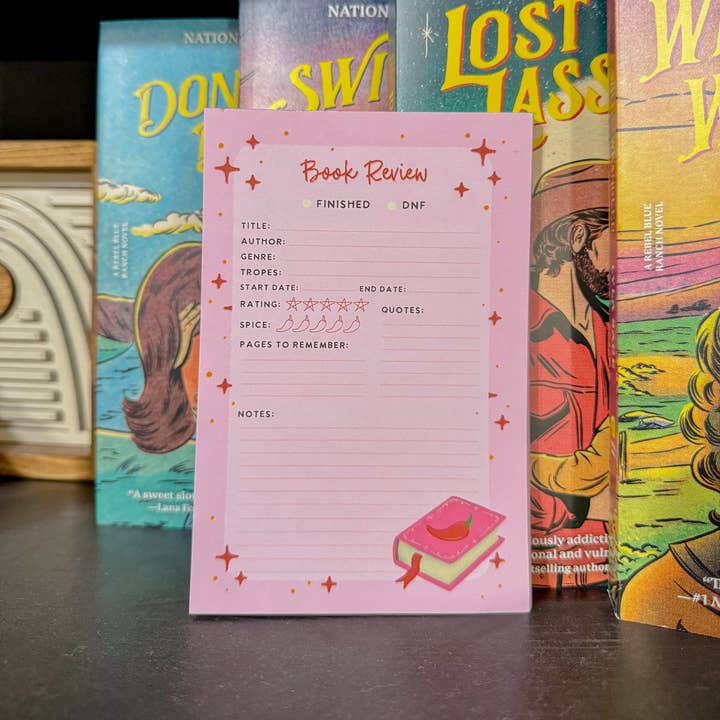 NATION
NATION
DON
SWI
LOST
LASS
W
W
A REBEL BLUE
RANCH NOVEL
A REBEL BLUE
RANCH NOVEL
Book Review
FINISHED DNF
TITLE:
AUTHOR:
GENRE:
TROPES:
START DATE: END DATE:
RATING:
QUOTES:
SPICE:
PAGES TO REMEMBER:
NOTES:
"A sweet slo
—Lana Fe
ously addicti
onal and vuln
tselling author
—#1 N